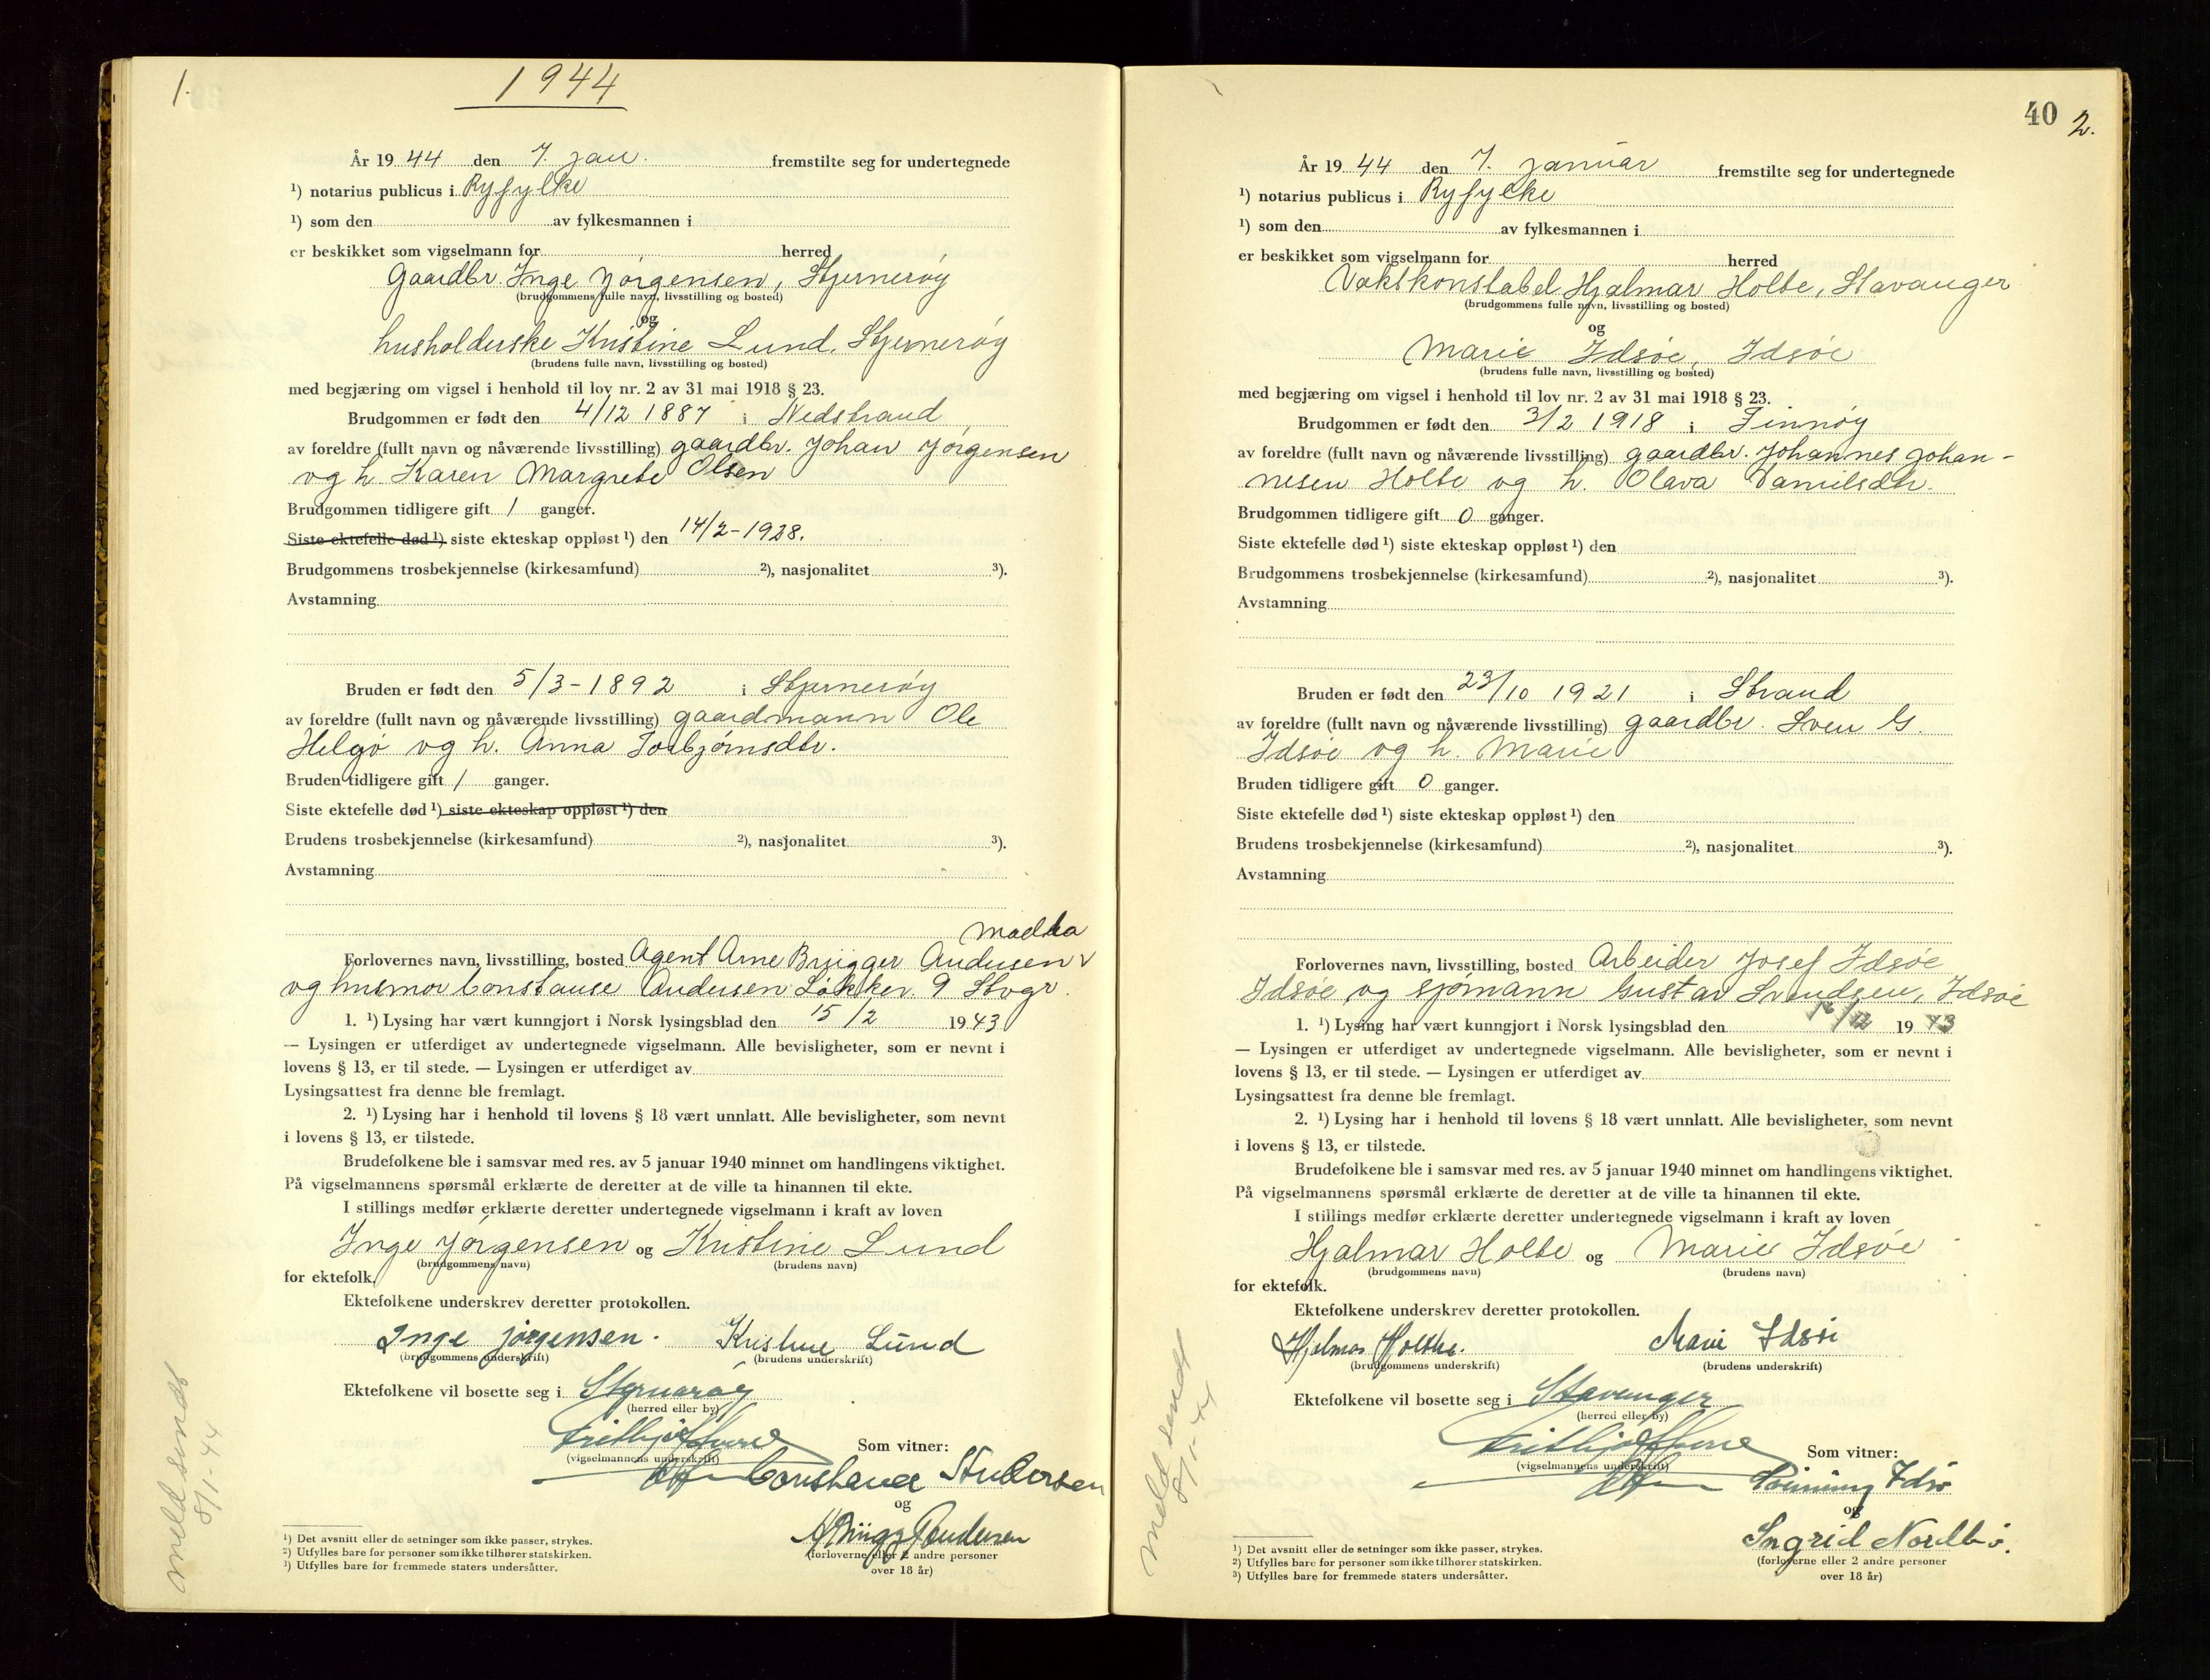 1.
1944
År 19 44 den 7. jan. fremstilte seg for undertegnede
¹) notarius publicus i Ryfylke
¹) som den av fylkesmannen i
er beskikket som vigselmann for herred
Gaardbr. Inge Jørgensen, Stjernerøy
(brudgommens fulle navn, livsstilling og bosted)
og
husholderske Kristine Lund, Stjernerøy
(brudens fulle navn, livsstilling og bosted)
med begjæring om vigsel i henhold til lov nr. 2 av 31 mai 1918 § 23.
Brudgommen er født den 4/12 1887 i Nedstrand
av foreldre (fullt navn og nåværende livsstilling) gaardbr. Johan Jørgensen
og h. Karen Margrete Olsen
Brudgommen tidligere gift 1 ganger.
Siste ektefelle død ¹) siste ekteskap oppløst ¹) den 14/2-1928.
Brudgommens trosbekjennelse (kirkesamfund) ²), nasjonalitet ³).
Avstamning
Bruden er født den 5/3-1892 i Stjernerøy
av foreldre (fullt navn og nåværende livsstilling) gaardmann Ole
Helgø og h. Anna Torbjørnsdtr.
Bruden tidligere gift 1 ganger.
Siste ektefelle død ¹) siste ekteskap oppløst ¹) den
Brudens trosbekjennelse (kirkesamfund) ²), nasjonalitet ³).
Avstamning
Madla
Forlovernes navn, livsstilling, bosted Agent Arne Brügger Andersen
og husmor Constanse Andersen Løkkev. 9 Stvgr.
1. ¹) Lysing har vært kunngjort i Norsk lysingsblad den 15/2 19 43
— Lysingen er utferdiget av undertegnede vigselmann. Alle bevisligheter, som er nevnt i
lovens § 13, er til stede. — Lysingen er utferdiget av
Lysingsattest fra denne ble fremlagt.
2. ¹) Lysing har i henhold til lovens § 18 vært unnlatt. Alle bevisligheter, som nevnt
i lovens § 13, er tilstede.
Brudefolkene ble i samsvar med res. av 5 januar 1940 minnet om handlingens viktighet.
På vigselmannens spørsmål erklærte de deretter at de ville ta hinannen til ekte.
I stillings medfør erklærte deretter undertegnede vigselmann i kraft av loven
Inge Jørgensen og Kristine Lund
(brudgommens navn) (brudens navn)
for ektefolk.
Ektefolkene underskrev deretter protokollen.
Inge Jørgensen. Kristine Lund
(brudgommens underskrift) (brudens underskrift)
Ektefolkene vil bosette seg i Stjernarøy
(herred eller by)
Som vitner:
(vigselmannens underskrift)
Constance Andersen
og
A Brügg Andersen
(forloverne eller 2 andre personer
over 18 år)
¹) Det avsnitt eller de setninger som ikke passer, strykes.
²) Utfylles bare for personer som ikke tilhører statskirken.
³) Utfylles bare for fremmede staters undersåtter.
meld sendt
8/1-44
40
2.
År 19 44 den 7. januar fremstilte seg for undertegnede
¹) notarius publicus i Ryfylke
¹) som den av fylkesmannen i
er beskikket som vigselmann for herred
Vaktkonstabel Hjalmar Holte, Stavanger
(brudgommens fulle navn, livsstilling og bosted)
og
Marie Idsøe, Idsøe
(brudens fulle navn, livsstilling og bosted)
med begjæring om vigsel i henhold til lov nr. 2 av 31 mai 1918 § 23.
Brudgommen er født den 3/2 1918 i Finnøy
av foreldre (fullt navn og nåværende livsstilling) gaardbr. Johannes Johan-
nesen Holte og h. Olava Danielsdtr.
Brudgommen tidligere gift 0 ganger.
Siste ektefelle død ¹) siste ekteskap oppløst ¹) den
Brudgommens trosbekjennelse (kirkesamfund) ²), nasjonalitet ³).
Avstamning
Bruden er født den 23/10 1921 i Strand
av foreldre (fullt navn og nåværende livsstilling) gaardbr. Sven G.
Idsøe og h. Marie
Bruden tidligere gift 0 ganger.
Siste ektefelle død ¹) siste ekteskap oppløst ¹) den
Brudens trosbekjennelse (kirkesamfund) ²), nasjonalitet ³).
Avstamning
Forlovernes navn, livsstilling, bosted Arbeider Josef Idsøe
Idsøe og sjømann Gustav Svendsen, Idsøe
1. ¹) Lysing har vært kunngjort i Norsk lysingsblad den /12 19 43
— Lysingen er utferdiget av undertegnede vigselmann. Alle bevisligheter, som er nevnt i
lovens § 13, er til stede. — Lysingen er utferdiget av
Lysingsattest fra denne ble fremlagt.
2. ¹) Lysing har i henhold til lovens § 18 vært unnlatt. Alle bevisligheter, som nevnt
i lovens § 13, er tilstede.
Brudefolkene ble i samsvar med res. av 5 januar 1940 minnet om handlingens viktighet.
På vigselmannens spørsmål erklærte de deretter at de ville ta hinannen til ekte.
I stillings medfør erklærte deretter undertegnede vigselmann i kraft av loven
Hjalmar Holte og Marie Idsøe
(brudgommens navn) (brudens navn)
for ektefolk.
Ektefolkene underskrev deretter protokollen.
Hjalmar Holthe. Marie Idsøe
(brudgommens underskrift) (brudens underskrift)
Ektefolkene vil bosette seg i Stavanger
(herred eller by)
Som vitner:
(vigselmannens underskrift)
Idsø
og
Ingrid Nordbø.
(forloverne eller 2 andre personer
over 18 år)
¹) Det avsnitt eller de setninger som ikke passer, strykes.
²) Utfylles bare for personer som ikke tilhører statskirken.
³) Utfylles bare for fremmede staters undersåtter.
meld sendt
8/1-44